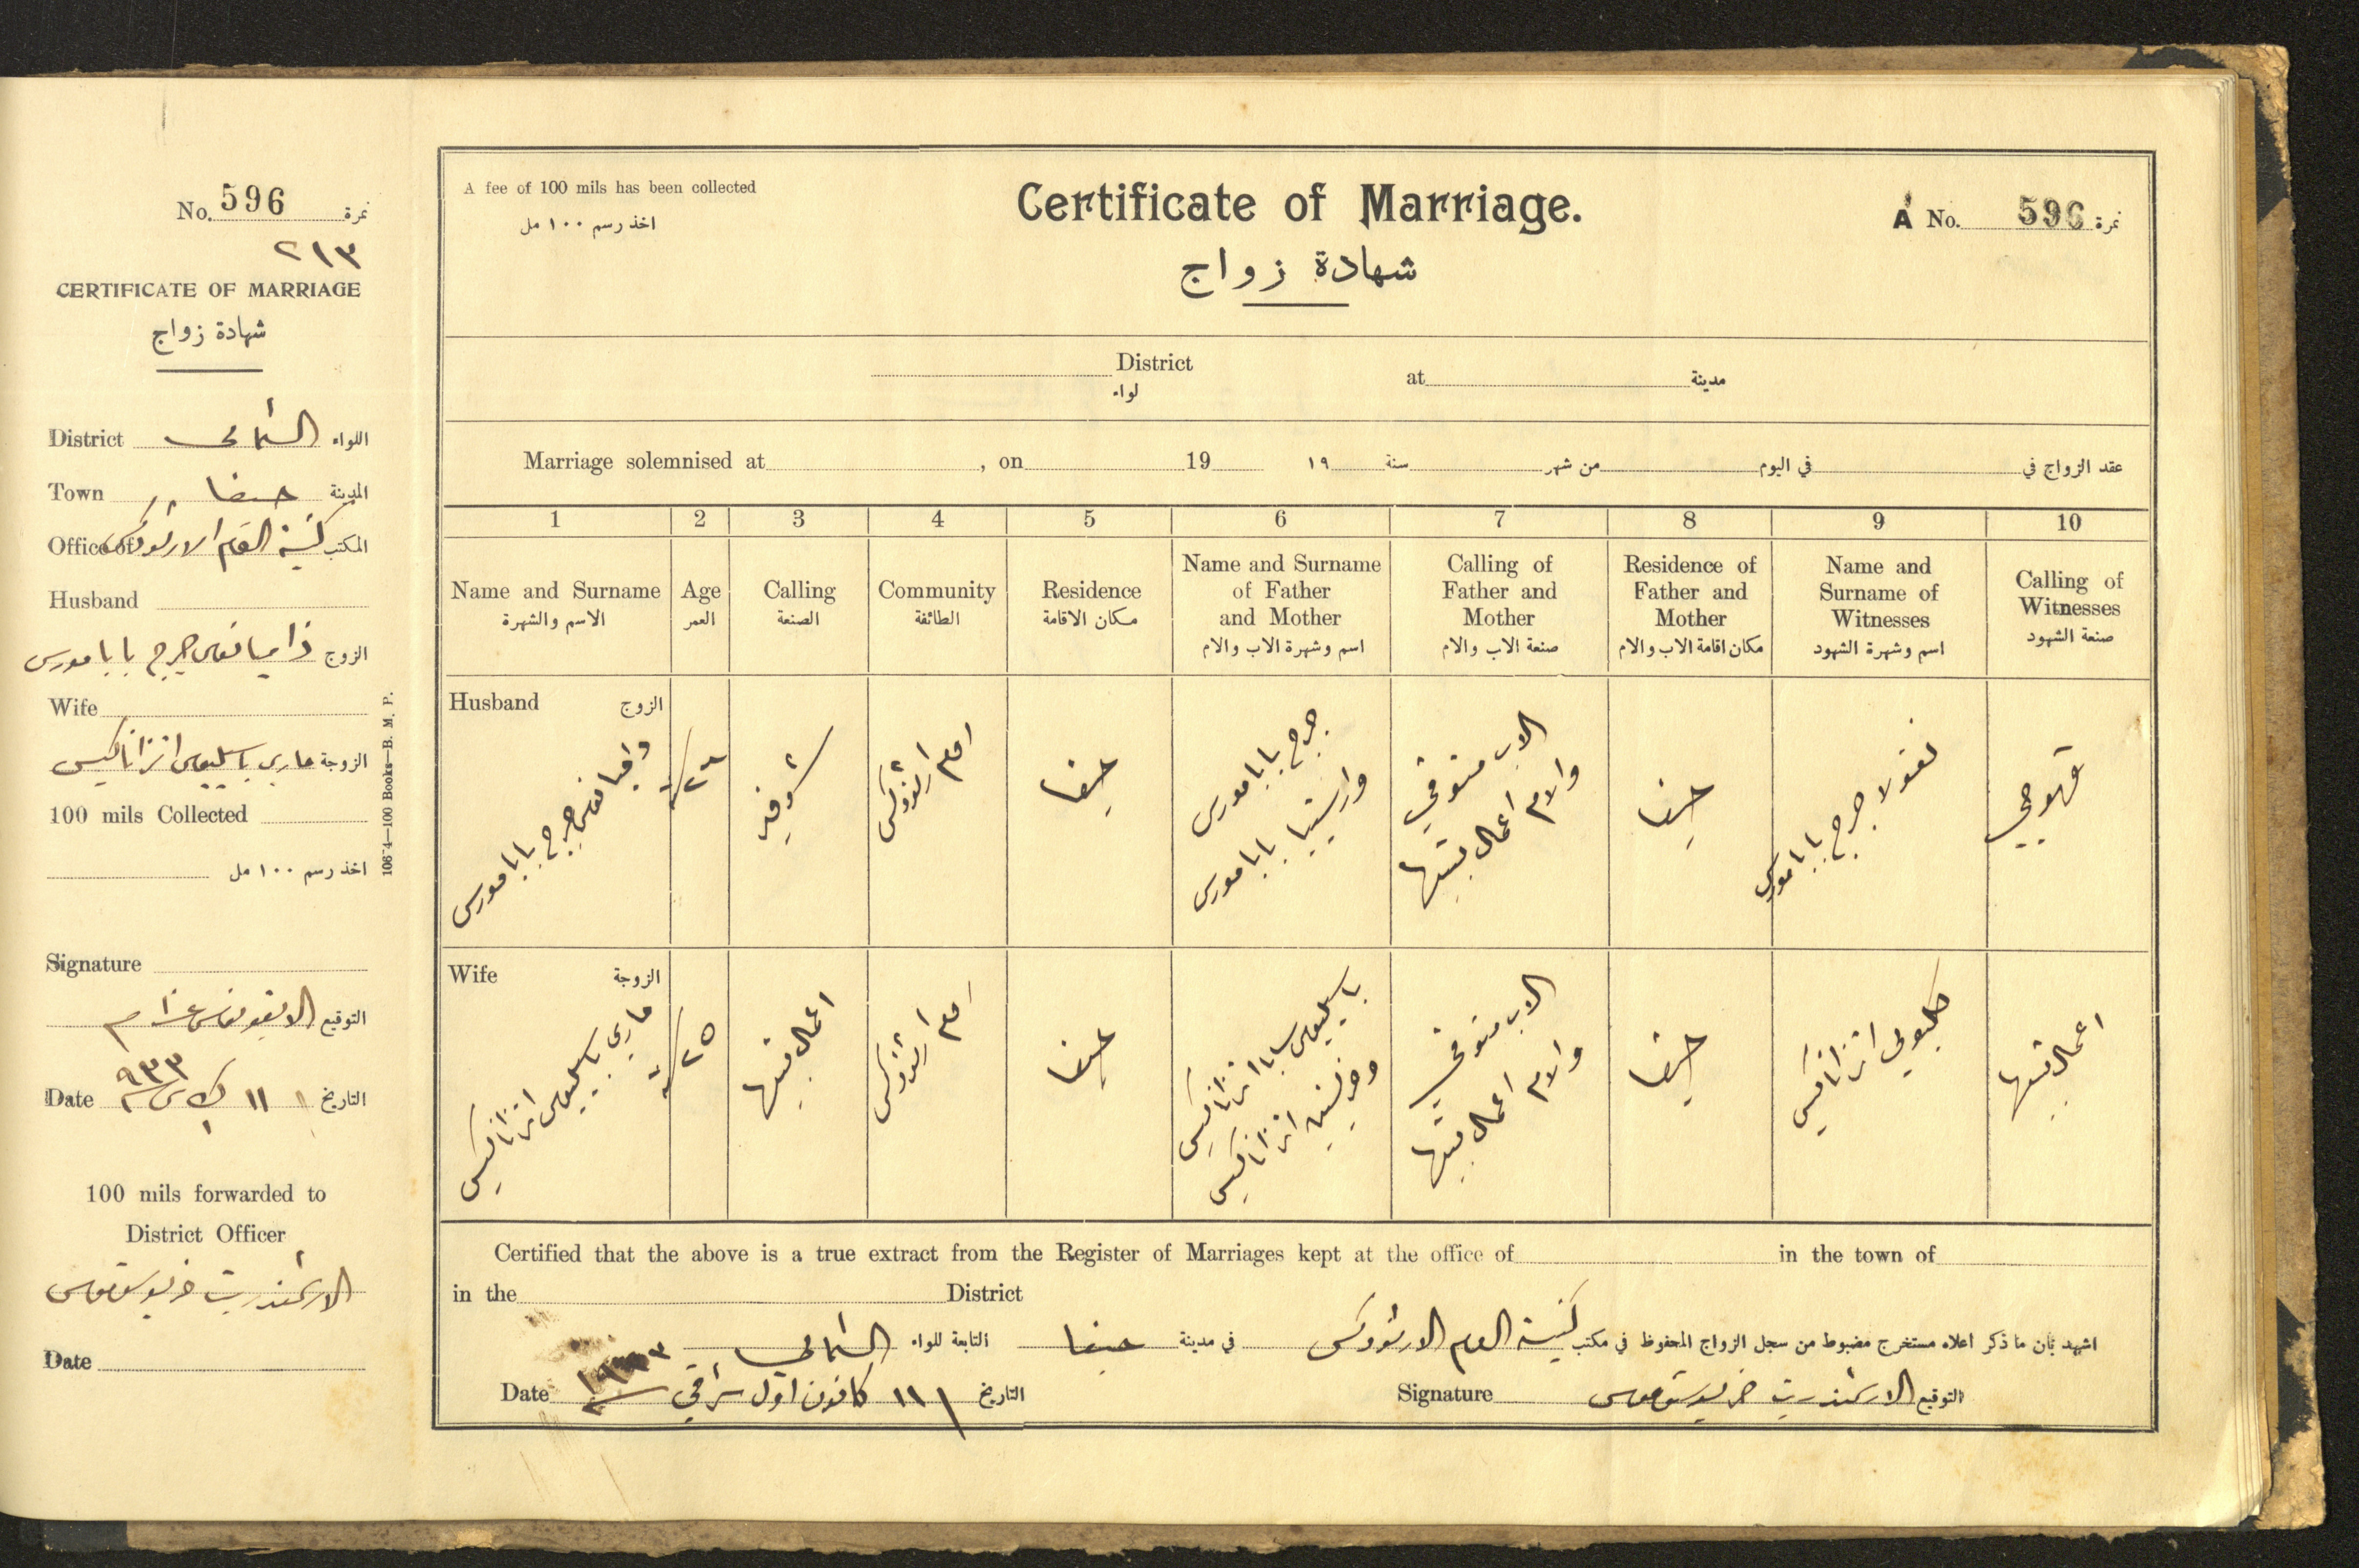 No. 596 نمرة
٢١٣
CERTIFICATE OF MARRIAGE
شهادة زواج
District الشمالي اللواء
Town حيفا المدينة
Office of كنيسة الروم الارثوذكس المكتب
Husband
الزوج ذاميانوس جرجي بابا موريس
Wife
الزوجة ماري باسيليوس انزاناكيس
100 mils Collected
اخذ رسم ١٠٠ مل
Signature
التوقيع الايقونومس
Date ١١ ك١ ش سنة ٩٣٣ التاريخ
100 mils forwarded to
District Officer
الارشمندريت خريسوستموس
Date
106 4—100 Books—B. M. P.
A fee of 100 mils has been collected
اخذ رسم ١٠٠ مل
Certificate of Marriage.
شهادة زواج
A No. 596 نمرة
District
لواء
at مدينة
Marriage solemnised at , on 19 ١٩ سنة من شهر في اليوم عقد الزواج في
1 2 3 4 5 6 7 8 9 10
Name and Surname
الاسم والشهرة
Age
العمر
Calling
الصنعة
Community
الطائفة
Residence
مكان الاقامة
Name and Surname
of Father
and Mother
اسم وشهرة الاب والام
Calling of
Father and
Mother
صنعة الاب والام
Residence of
Father and
Mother
مكان اقامة الاب والام
Name and
Surname of
Witnesses
اسم وشهرة الشهود
Calling of
Witnesses
صنعة الشهود
Husband الزوج
ذاميانوس جرجي بابا موريس
شوفير
روم ارثوذكس
حيفا
جرجي بابا موريس
بابا موريس
الاب متوفي
والام اعمال بيتها
حيفا
نقولا جرجي بابا موريس
قهوجي
Wife الزوجة
ماري باسيليوس انزاناكيس
٢٥ سنة
اعمال بيتها
روم ارثوذكس
حيفا
باسيليوس بابا انزاناكيس
انزاناكيس
الاب متوفي
والام اعمال بيتها
حيفا
انزاناكيس
اعمال بيتها
Certified that the above is a true extract from the Register of Marriages kept at the office of in the town of
in the District
اشهد بان ما ذكر اعلاه مستخرج مضبوط من سجل الزواج المحفوظ في مكتب كنيسة الروم الارثوذكس في مدينة حيفا التابعة للواء الشمالي
Date ١١ كانون اول شرقي سنة ١٩٣٣ التاريخ
Signature الارشمندريت خريسوستموس التوقيع